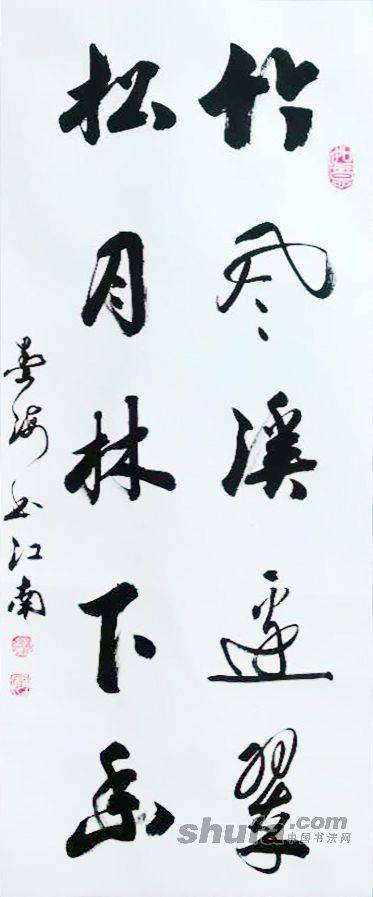 竹风溪边翠
松月林下幽
墨海书江南
shufa.com
中国书法网